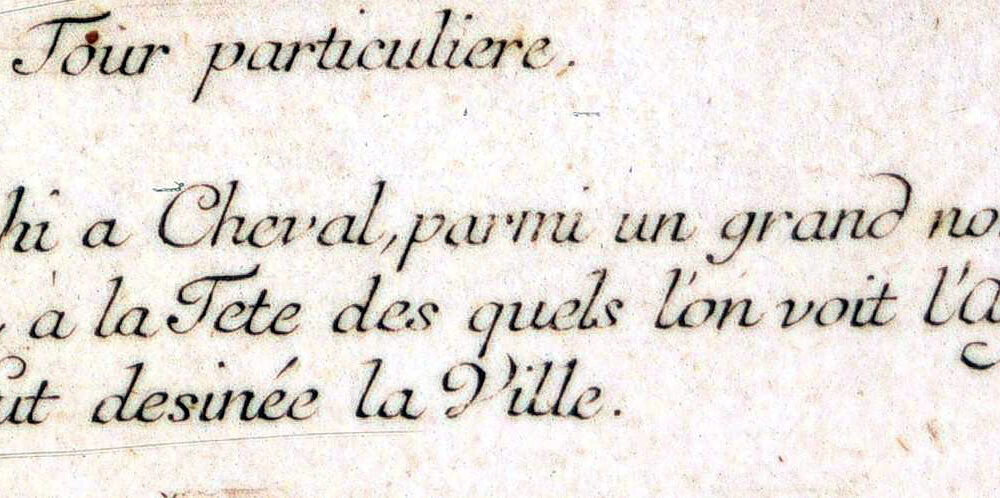 Tour particuliere.
hi a Cheval, parmi un grand no
à la Tete des quels l'on voit l'a
ut desinée la Ville.